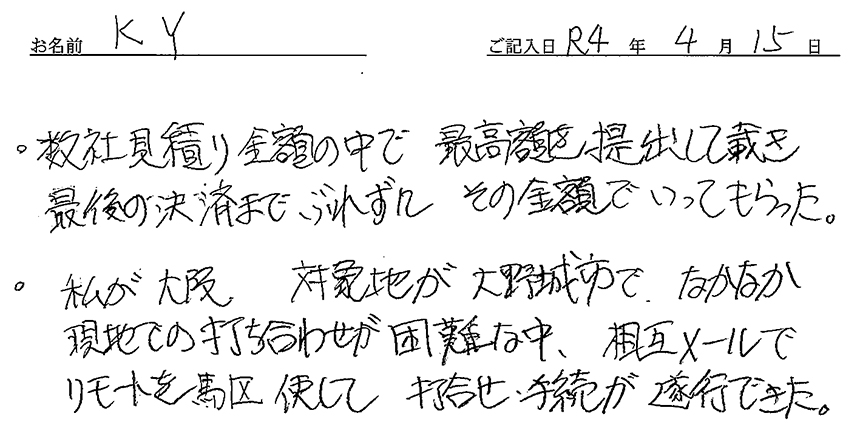 お名前 K Y ご記入日 R4 年 4 月 15 日
。数社見積り金額の中で 最高額を提出して戴き
最後の決済まで ぶれずに その金額でいってもらった。
。私が大阪 対象地が大野城市で、なかなか
現地での打ち合わせが困難な中、相互メールで
リモートを馬区使して 打合せ、手続が遂行できた。